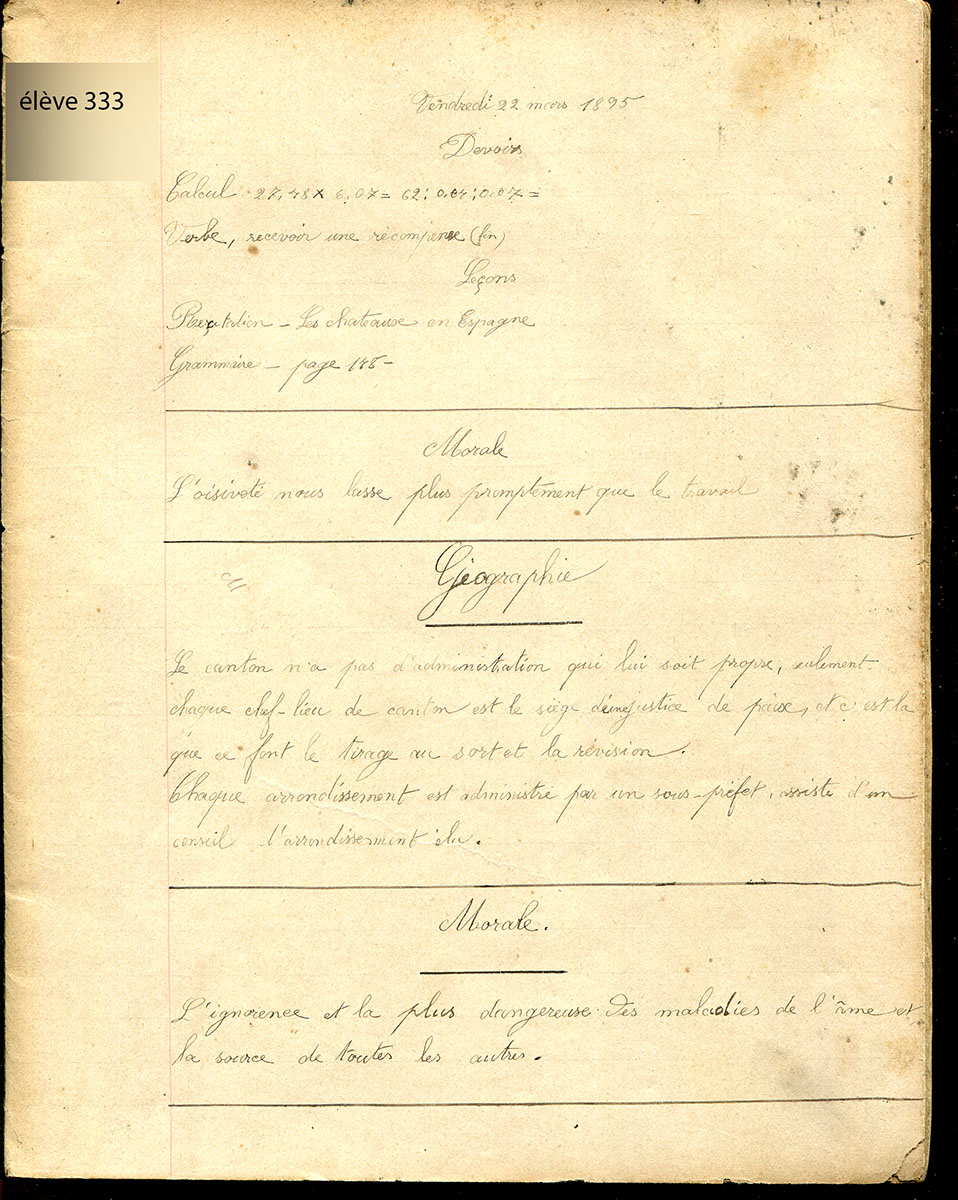 élève 333
Vendredi 22 mars 1895
Devoirs
Calcul 27,48 × 6,07 = 62 : 0,04 : 0,07 =
Verbe, recevoir une récompense (fin)
Leçons
Recitation – Les chateaux en Espagne
Grammaire – page 148 –
Morale
L'oisiveté nous lasse plus promptement que le travail
Géographie
Le canton n'a pas d'administration qui lui soit propre, seulement
chaque chef-lieu de canton est le siège d'une justice de paix, et c'est la
que ce font le tirage au sort et la révision.
Chaque arrondissement est administré par un sous-préfet, assisté d'un
conseil d'arrondissement élu.
Morale.
L'ignorence et la plus dangereuse des maladies de l'âme et
la source de toutes les autres.